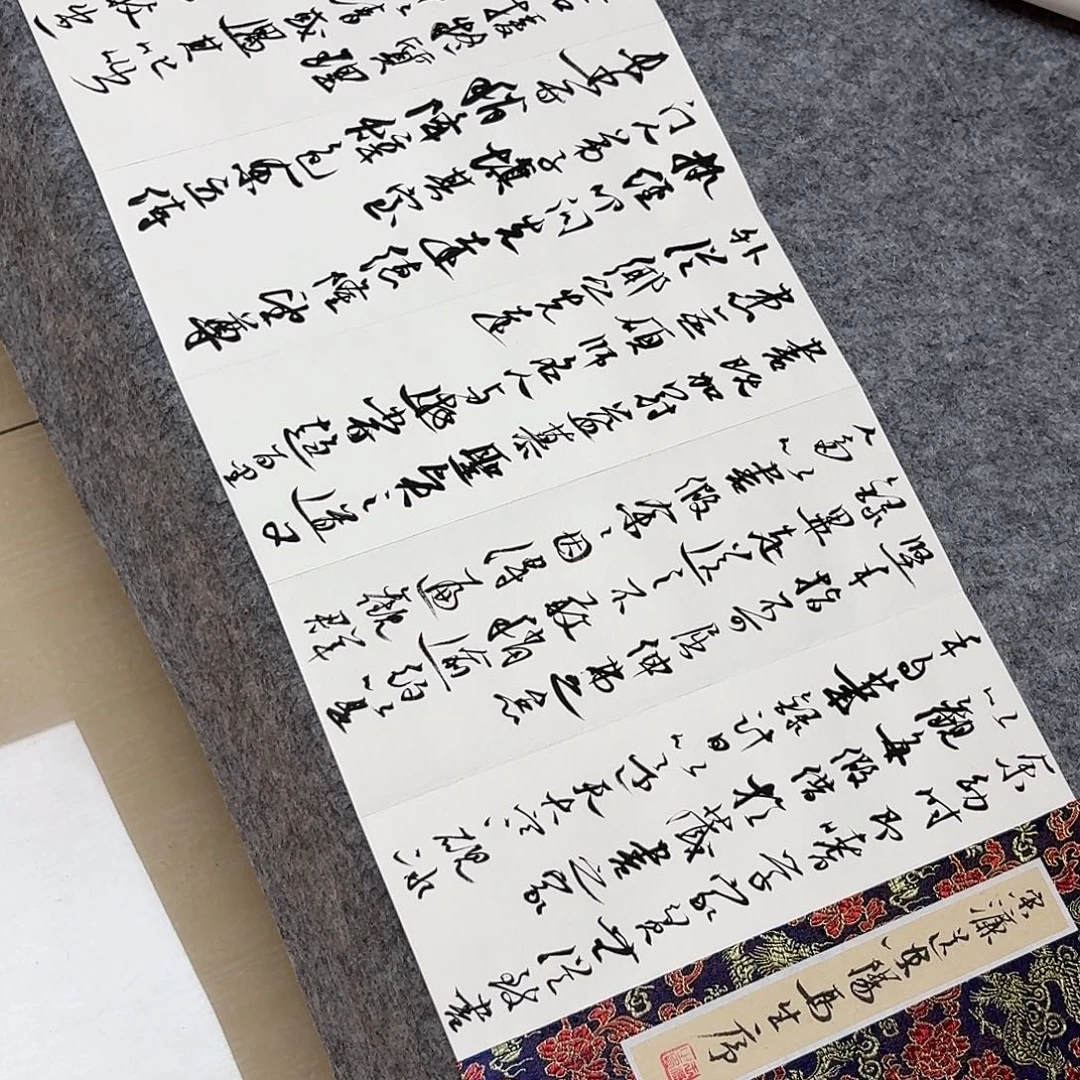 宋濂送東陽馬生序
余幼时即嗜学家贫无從致書
以觀每假借於藏書之家
手自筆錄計日以還天大寒硯冰
堅手指不可屈伸弗之怠
錄畢走送之不敢稍逾約以是
人多以書假余余因得遍觀群
書既加冠益慕聖賢之道又
患無碩師名人与遊嘗趨百里
外從鄉之先達
執經叩问先達德隆望尊
门人弟子填其室
未嘗稍降辭色余立侍
援疑質理
請或遇其叱咄